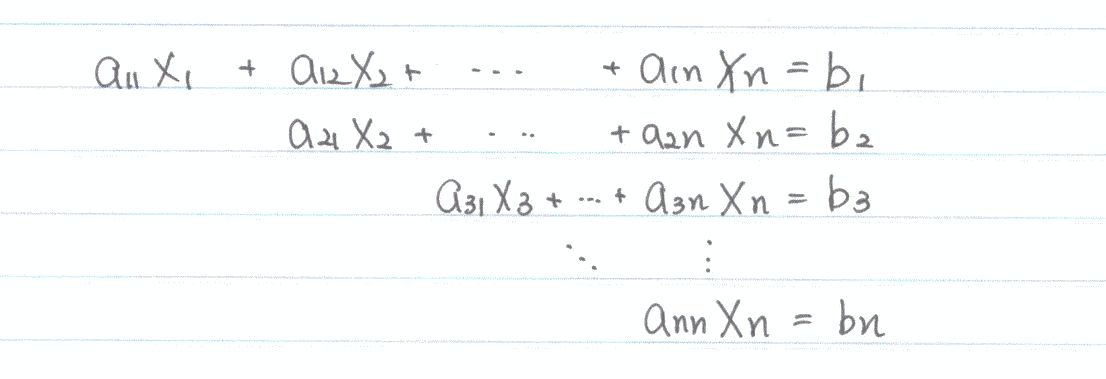 a₁₁x₁ + a₁₂x₂ + ... + a₁ₙxₙ = b₁
a₂₁x₂ + ... + a₂ₙxₙ = b₂
a₃₁x₃ + ... + a₃ₙxₙ = b₃
⋱ ⋮
aₙₙxₙ = bₙ